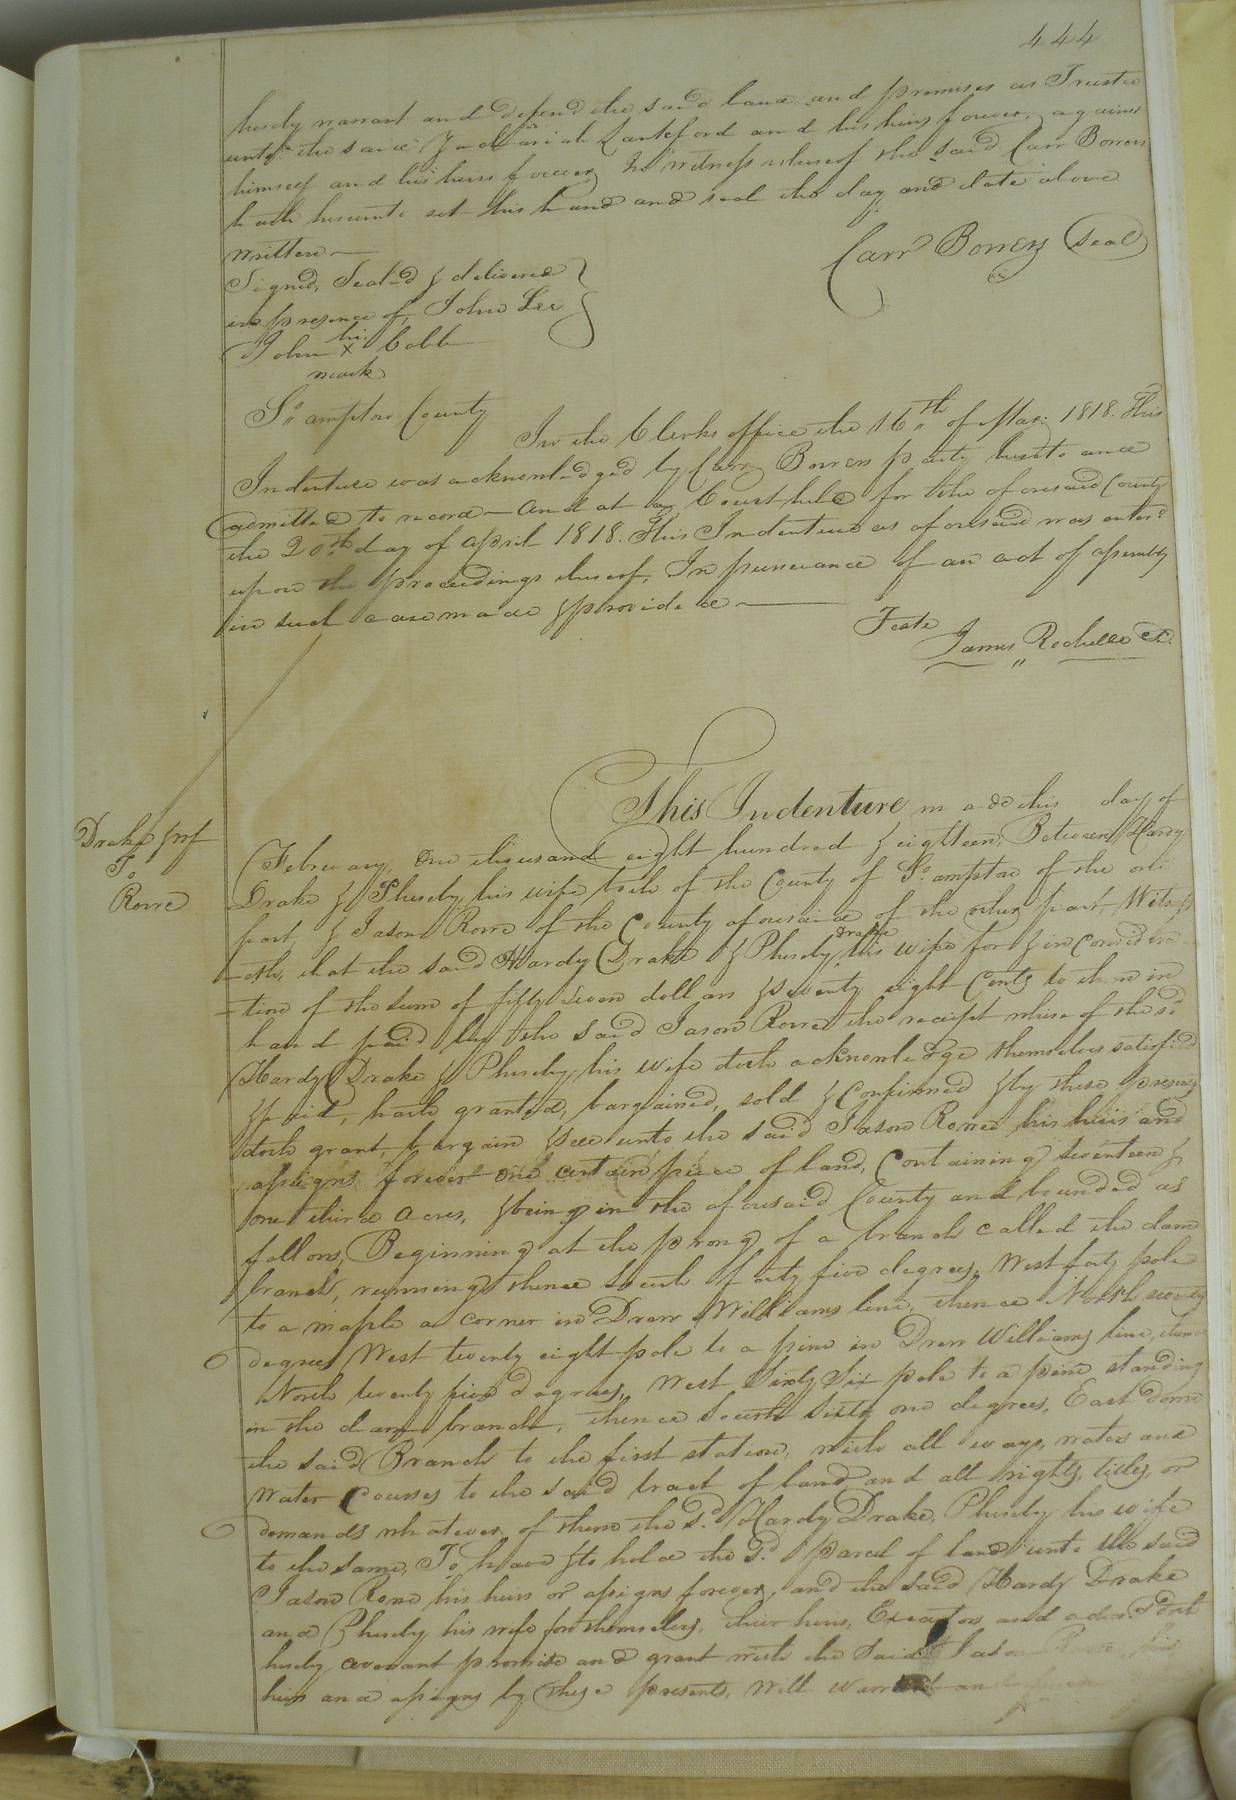 444
hereby warrant and defend the said land and premises as Trustee
unto the said Zachariah Lankford and his heirs forever, against
himself and his heirs forever, In witness whereof the said Carr Bowers
hath hereunto set his hand and seal the day and date above
written—
Carr Bowers Seal
Signed, Sealed & delivered
in presence of, John Lee
his
John X Cobb
mark
So. ampton County
In the Clerks office the 16th of Mar: 1818. This
Indenture was acknowledged by Carr Bowers party hereto and
admitted to record — And at a Court held for the aforesaid County
the 20th day of April 1818. This Indenture as aforesaid was enterd
upon the proceedings thereof, In pursuance of an act of assembly
in such case made & provided —
Teste
James Rochelle Ct.
This Indenture made this day of
Drake & wf
To
Rowe
February, One thousand eight hundred & eighteen, Between Hardy
Drake & Phereby his wife both of the County of So. ampton of the one
part, & Jason Rowe of the County aforesaid of the other part, Witness
-eth, that the said Hardy Drake & Phereby Drake his wife for & in considera
-tion of the sum of fifty seven dollars & seventy eight Cents to them in
hand paid by the said Jason Rowe the receipt where of the sd.
Hardy Drake & Phereby his wife doth acknowledge themselves satisfied
& paid, hath granted, bargained, sold & Confirmed & by these presents
doth grant, bargain & sell unto the said Jason Rowe his heirs and
assigns forever one certain piece of land, Containing seventeen &
one third Acres, & being in the aforesaid County and bounded as
follows, Beginning at the prong of a branch called the dam
branch, running thence South forty five degrees, West forty pole
to a maple a corner in Drew Williams line, thence North seventy
degrees West twenty eight pole to a pine in Drew Williams line, thence
North twenty five degrees, West Sixty Six pole to a pine standing
in the dam branch, thence South sixty one degrees, East down
the said Branch to the first station, with all ways, waters and
Water Courses to the said tract of land and all rights, titles, or
demands whatever of them the sd. Hardy Drake, Phereby his wife
to the same, To have & to hold the sd. parcel of land unto the said
Jason Rowe his heirs or assigns forever, and the said Hardy Drake
and Phereby his wife for themselves, their heirs, Executors and adms. doth
hereby covenant promise and grant with the said Jason Rowe his
heirs and assigns by these presents, will warrant and